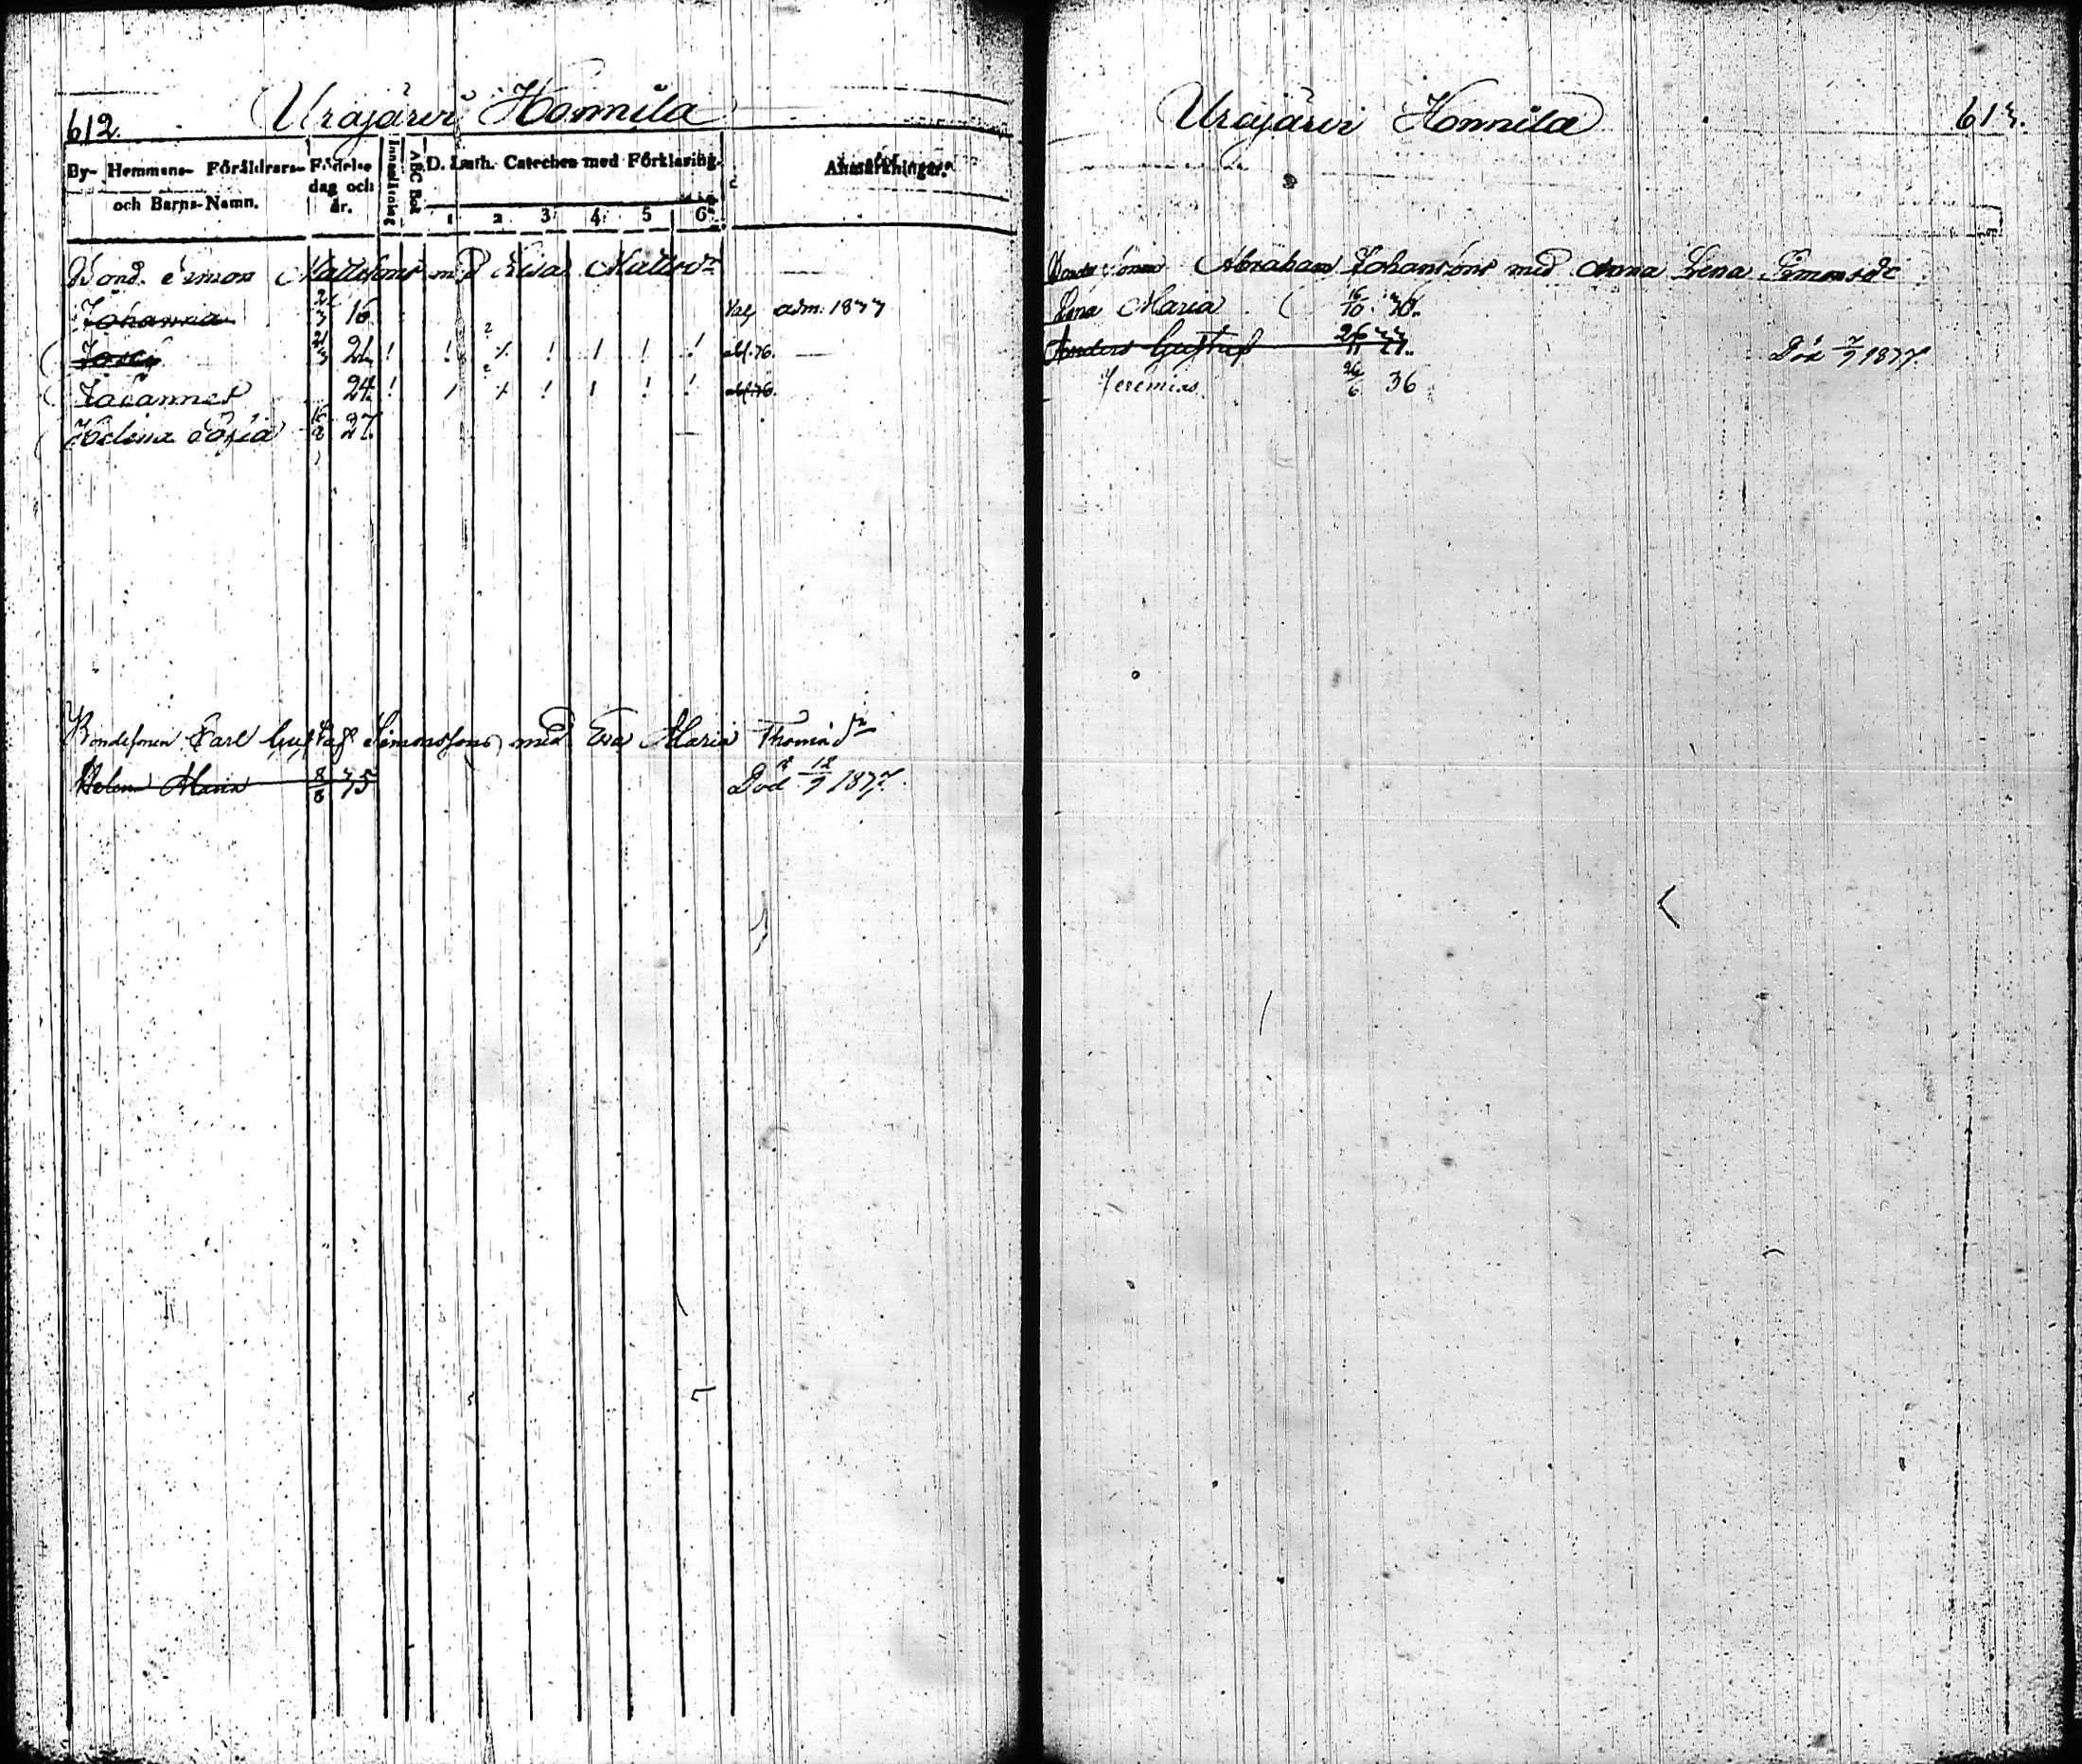 612 Urajärvi Honnila
By- Hemmans- Föräldrars- och Barns-Namn. Födelse dag och år. Innanläsning ABC Bok D. Luth. Cateches med Förklaring. Anmärkningar.
1 2 3 4 5 6
Bond. Simon Mattssons m. Mattsd:r
Johanna 16 adm. 1877
Josef 21/3 21 ! ! ! ! ! ! abs. 76.
Johannes 24 ! ! ! ! ! abs. 76.
Helena Sofia 16/8 27
Bondesonen Carl Gustaf Simonssons med Eva Maria Thomasd:r
Helena Maria 8/8 75 Död 12/7 1877.
Urajärvi Honnila 613.
Bondesonen Abraham Johanssons med Anna Lena Simonsdr
Lena Maria 16/10
Anders Gustaf 26/11 77. Död 1877.
Jeremias 26/6 36